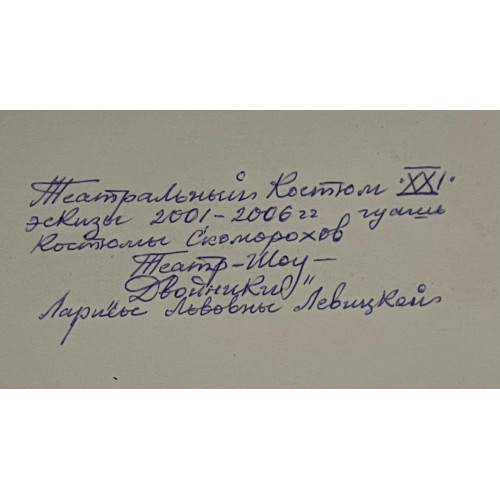 Театральный Костюм "XXI"
эскизы 2001-2006 гг гуашь
Костюмы Скоморохов
Театр-Шоу-
"Двойники"
Ларисы Львовны Левицкой